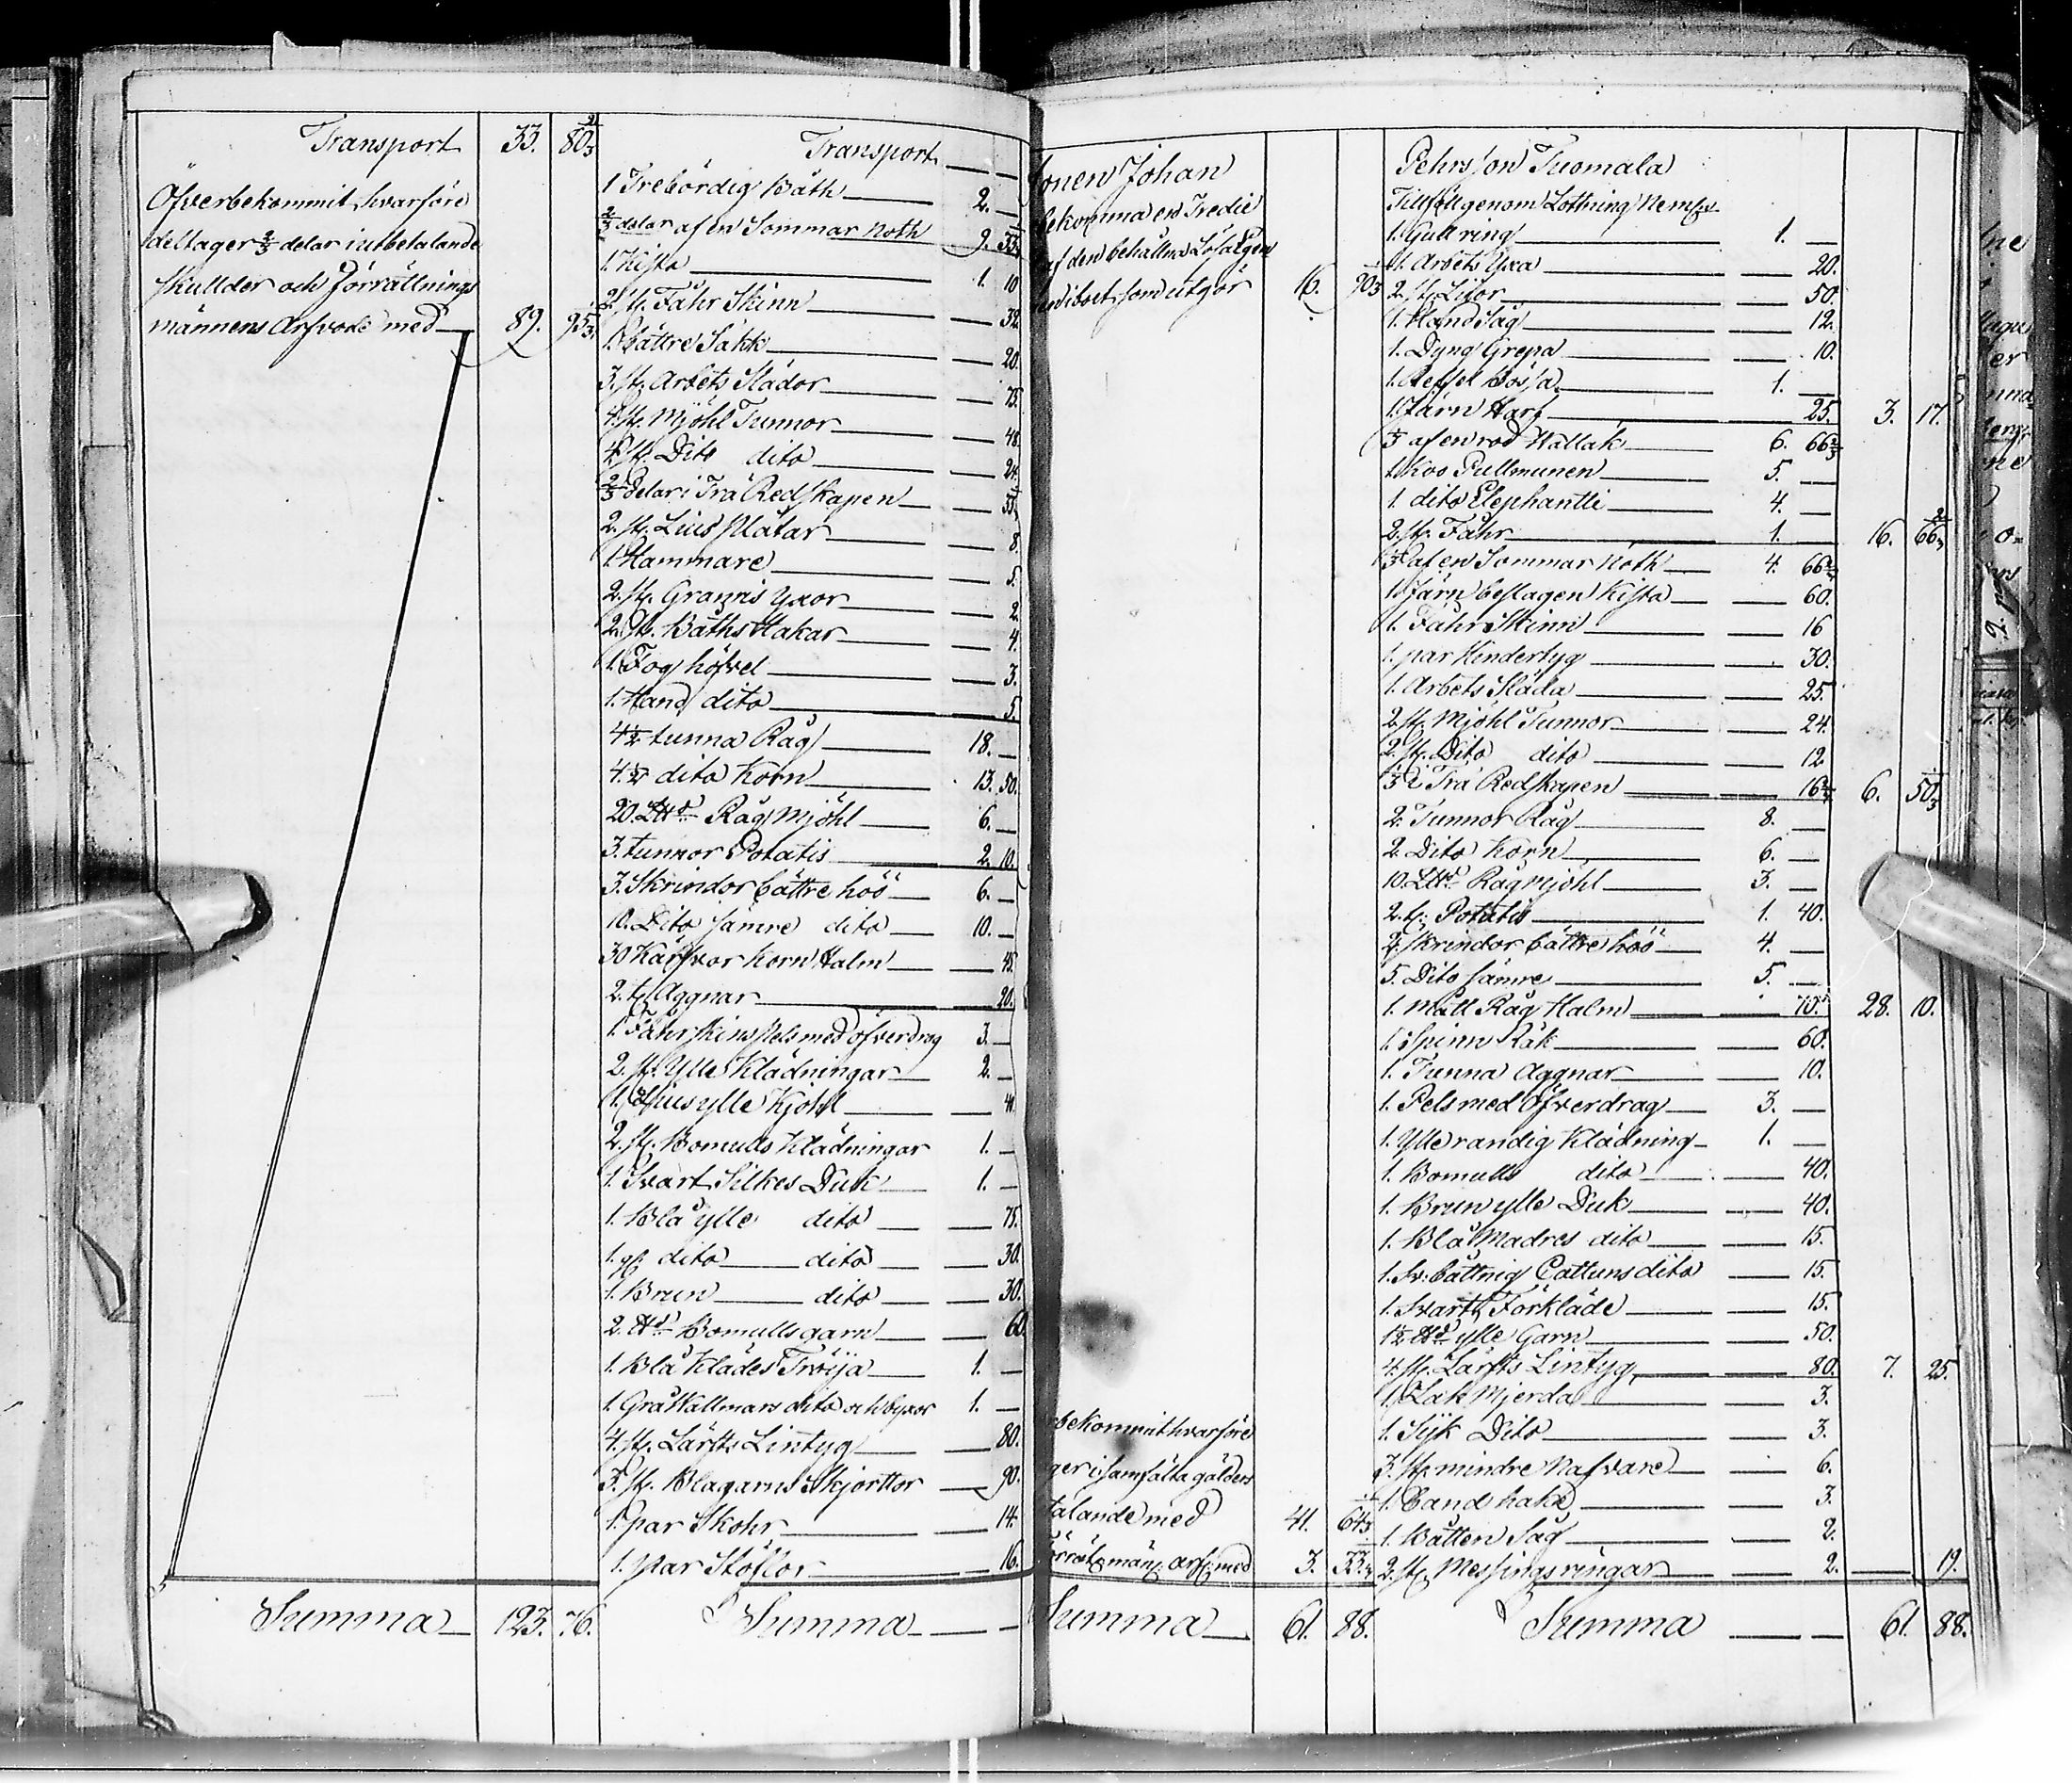 Transport 33. 80 2/3
Öfverbekommit, hvarföre
deltager 2/3 delar i utbetalande
skullder och Förrättnings
männens Arfvode med 89. 95 1/3
Summa 123. 76.
Transport
1 Trebördig Båth 2. —
2/3 delar af en Sommar Noth 9. 33 1/3
1. Kista 1. 10
2. st. Fåhr Skinn 32.
1. bättre Säkk 20.
3. st. Arbets Slädor 75.
4. st. Mjöhl Tunnor 48.
4. st. Dito dito 24.
2/3 delar i Trä Redskapen 33 1/3
2. st. Lius Plåtar 8.
1. Hammare 5.
2. st. Granris Yxor 2.
2. st. Båths Hakar 4.
1. Fog höfvel 3.
1. Hand dito 5.
4 1/2 tunna Råg 18. —
4 1/2 dito Korn 13. 50.
20. L℔d Råg Mjöhl 6. —
3. tunnor Potatis 2. 10.
3. Skrindor bättre höö 6. —
10. Dito sämre dito 10. —
30 Kärfvor Korn Halm 45.
2. t. Aggnar 20.
1. Fåhrskins Pels med öfverdrag 3. —
2. st. Ylle Klädningar 2. —
1. ylle Kjohl 40.
2. st. Bomulls Klädningar 1. —
1. Svart Silkes Duk 1. —
1. Blå ylle dito 75.
1. gl. dito dito 30.
1. Brun dito 30.
2. ℔d Bomullsgarn 60.
1. Blå Klädes Tröija 1. —
1. Grå Wallmars dito och byxor 1. —
4. st. Lärfts Lintyg 80.
3. st. Blagarns Skjorttor 90.
1. par Skohr 14.
1. par Stöflor 16.
Summa
sonen Johan
bekomma en Tredie
af den behållna Lösa Egen
som utgör 16. 90 1/3
bekommit hvarföre
ger i samfälta gälders
talande med 41. 64 1/3
förrätts män: arf: med 3. 33 1/3
Summa 61. 88.
Pehrsson Tuomala
Tillföll genom Lottning Neml.
1. Gull ring 1. —
1. Arbets Yxa 20.
2. st. Lior 50.
1. Hand Såg 12.
1. Dyng Grepa 10.
1. Reffel Bössa 1. —
1. Järn Harf 25. 3. 17.
1/3 af en röd Wallak 6. 66 2/3
1. Koo Pullmunen 5. —
1. dito Elephantti 4. —
2. st. Fåhr 1. — 16. 66 2/3
1/3 af en Sommar Noth 4. 66 2/3
1. Järn beslagen Kista 60.
1. Fåhr Skinn 16
1. par Hindertyg 30.
1. Arbets Släda 25.
2. st. Mjöhl Tunnor 24.
2. st. Dito dito 12
1/3 i Trä Redskapen 16 2/3 6. 50 1/3
2. Tunnor Råg 8. —
2. Dito Korn 6. —
10. L℔d Råg Mjöhl 3. —
2. t. Potatis 1. 40.
2. skrindor bättre höö 4. —
5. Dito sämre 5. —
1. Mått Råg Halm 70. 28. 10.
1. Spinn Råk 60.
1. Tunna Aggnar 10.
1. Pels med Öfverdrag 3. —
1. Ylle randig Klädning 1. —
1. Bomulls dito 40.
1. Brun ylle Duk 40.
1. Blå Madres dito 15.
1. Sv: båttnig Cattuns dito 15.
1. Svartt Förkläde 15.
1 1/2 ℔d ylle Garn 50.
4. st. Lärfts Lintyg 80. 7. 25.
1. Lak Mjerda 3.
1. Sijk Dito 3.
3. st. mindre Nafvare 6.
1. Band hake 3.
1. Båtten Såg 2.
2. st. Messings ringar 2. — 19.
Summa 61. 88.